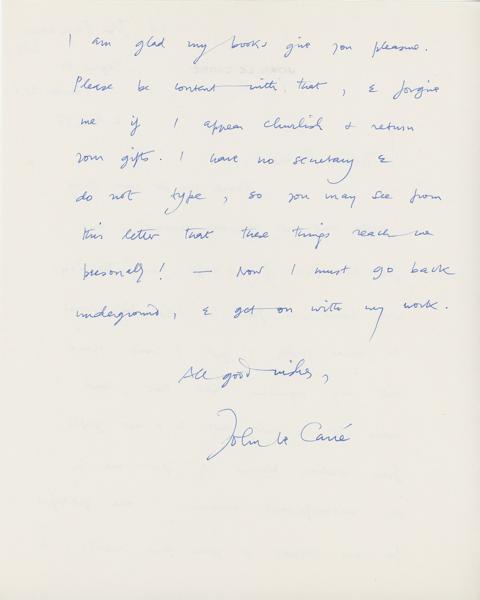 I am glad my books give you pleasure.
Please be content with that, & forgive
me if I appear churlish & return
your gifts. I have no secretary &
do not type, so you may see from
this letter that these things reach me
personally! — Now I must go back
underground, & get on with my work.
All good wishes,
John le Carré